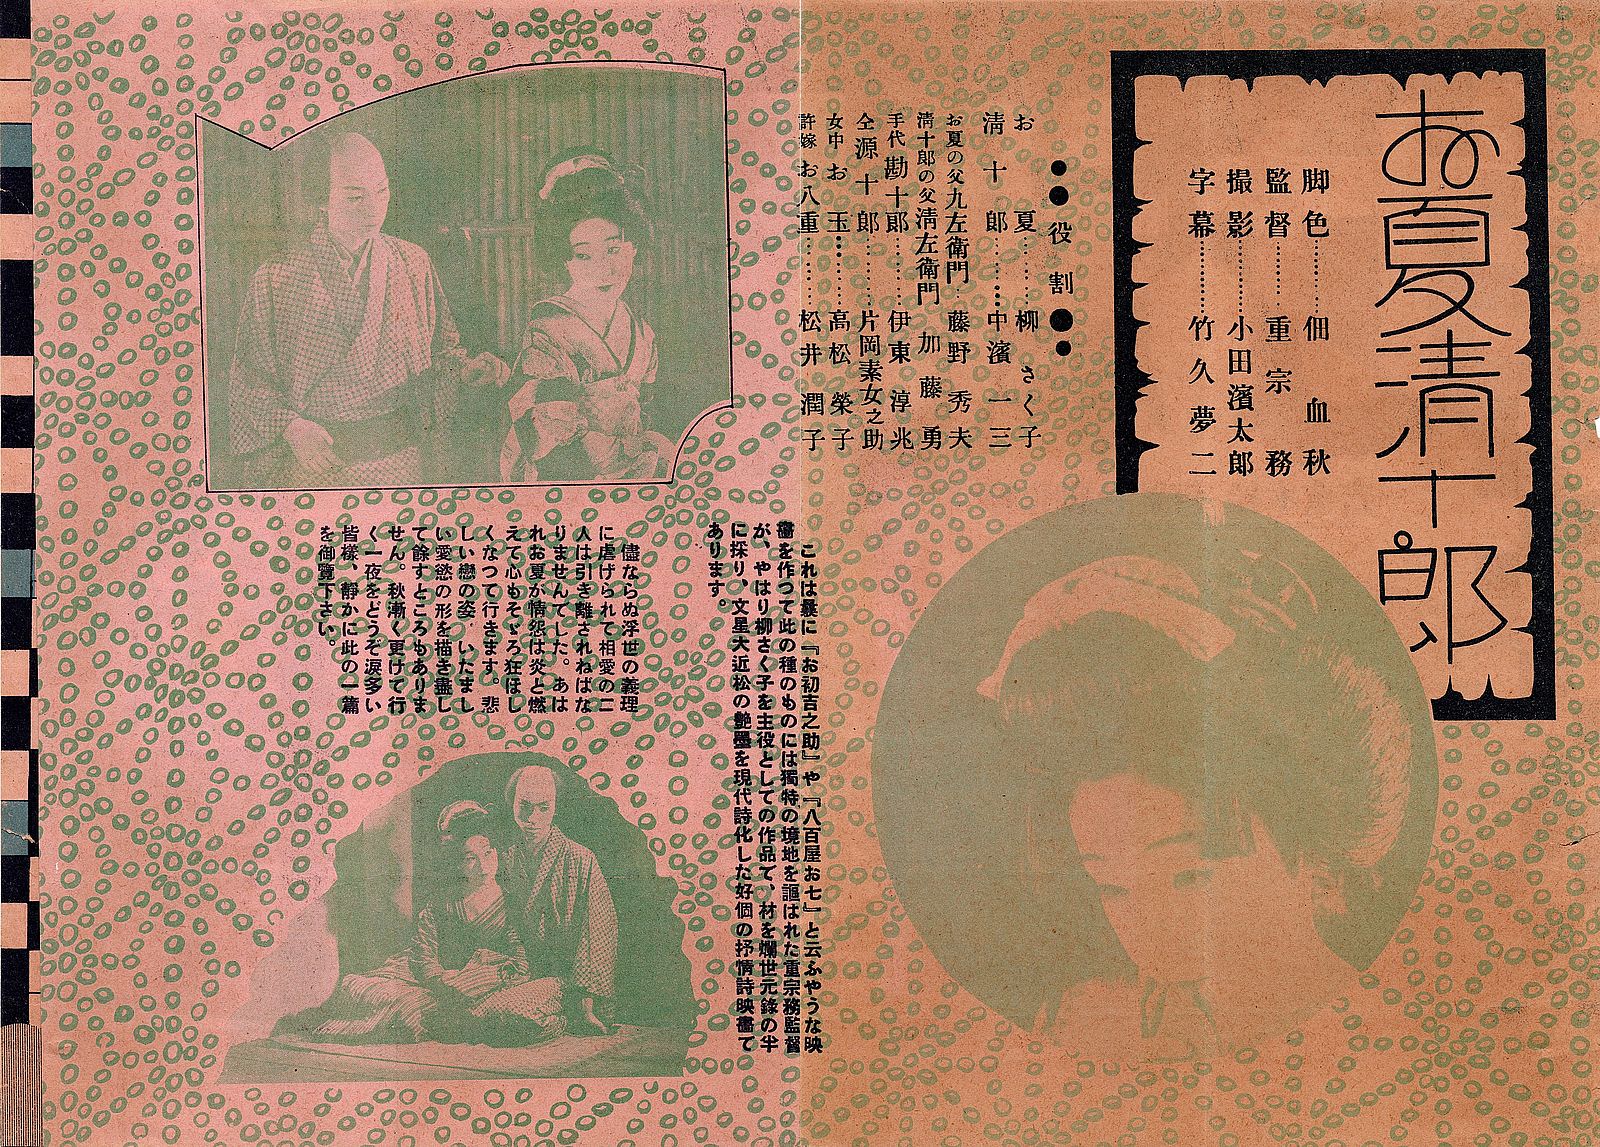 お夏清十郎
脚色………佃血秋
監督………重宗務
撮影………小田濱太郎
字幕………竹久夢二
●●役割●●
お夏………柳さく子
淸十郎………中濱一三
お夏の父九左衛門…藤野秀夫
淸十郎の父淸左衛門 加藤勇
手代勘十郎………伊東淳兆
仝源十郎………片岡素女之助
女中お玉………高松榮子
許嫁お八重………松井潤子
これは曩に『お初吉之助』や『八百屋お七』と云ふやうな映
畵を作つて此の種のものには獨特の境地を謳はれた重宗務監督
が、やはり柳さく子を主役としての作品で、材を爛世元錄の半
に採り、文星大近松の艶墨を現代詩化した好個の抒情詩映畵で
あります。
儘ならぬ浮世の義理
に虐げられて相愛の二
人は引き離されねばな
りませんでした。あは
れお夏が情怨は炎と燃
えて心もそゞろ狂ほし
くなつて行きます。悲
しい戀の姿、いたまし
い愛慾の形を描き盡し
て餘すところもありま
せん。秋漸く更けて行
く一夜をどうぞ淚多い
皆樣、靜かに此の一篇
を御覽下さい。